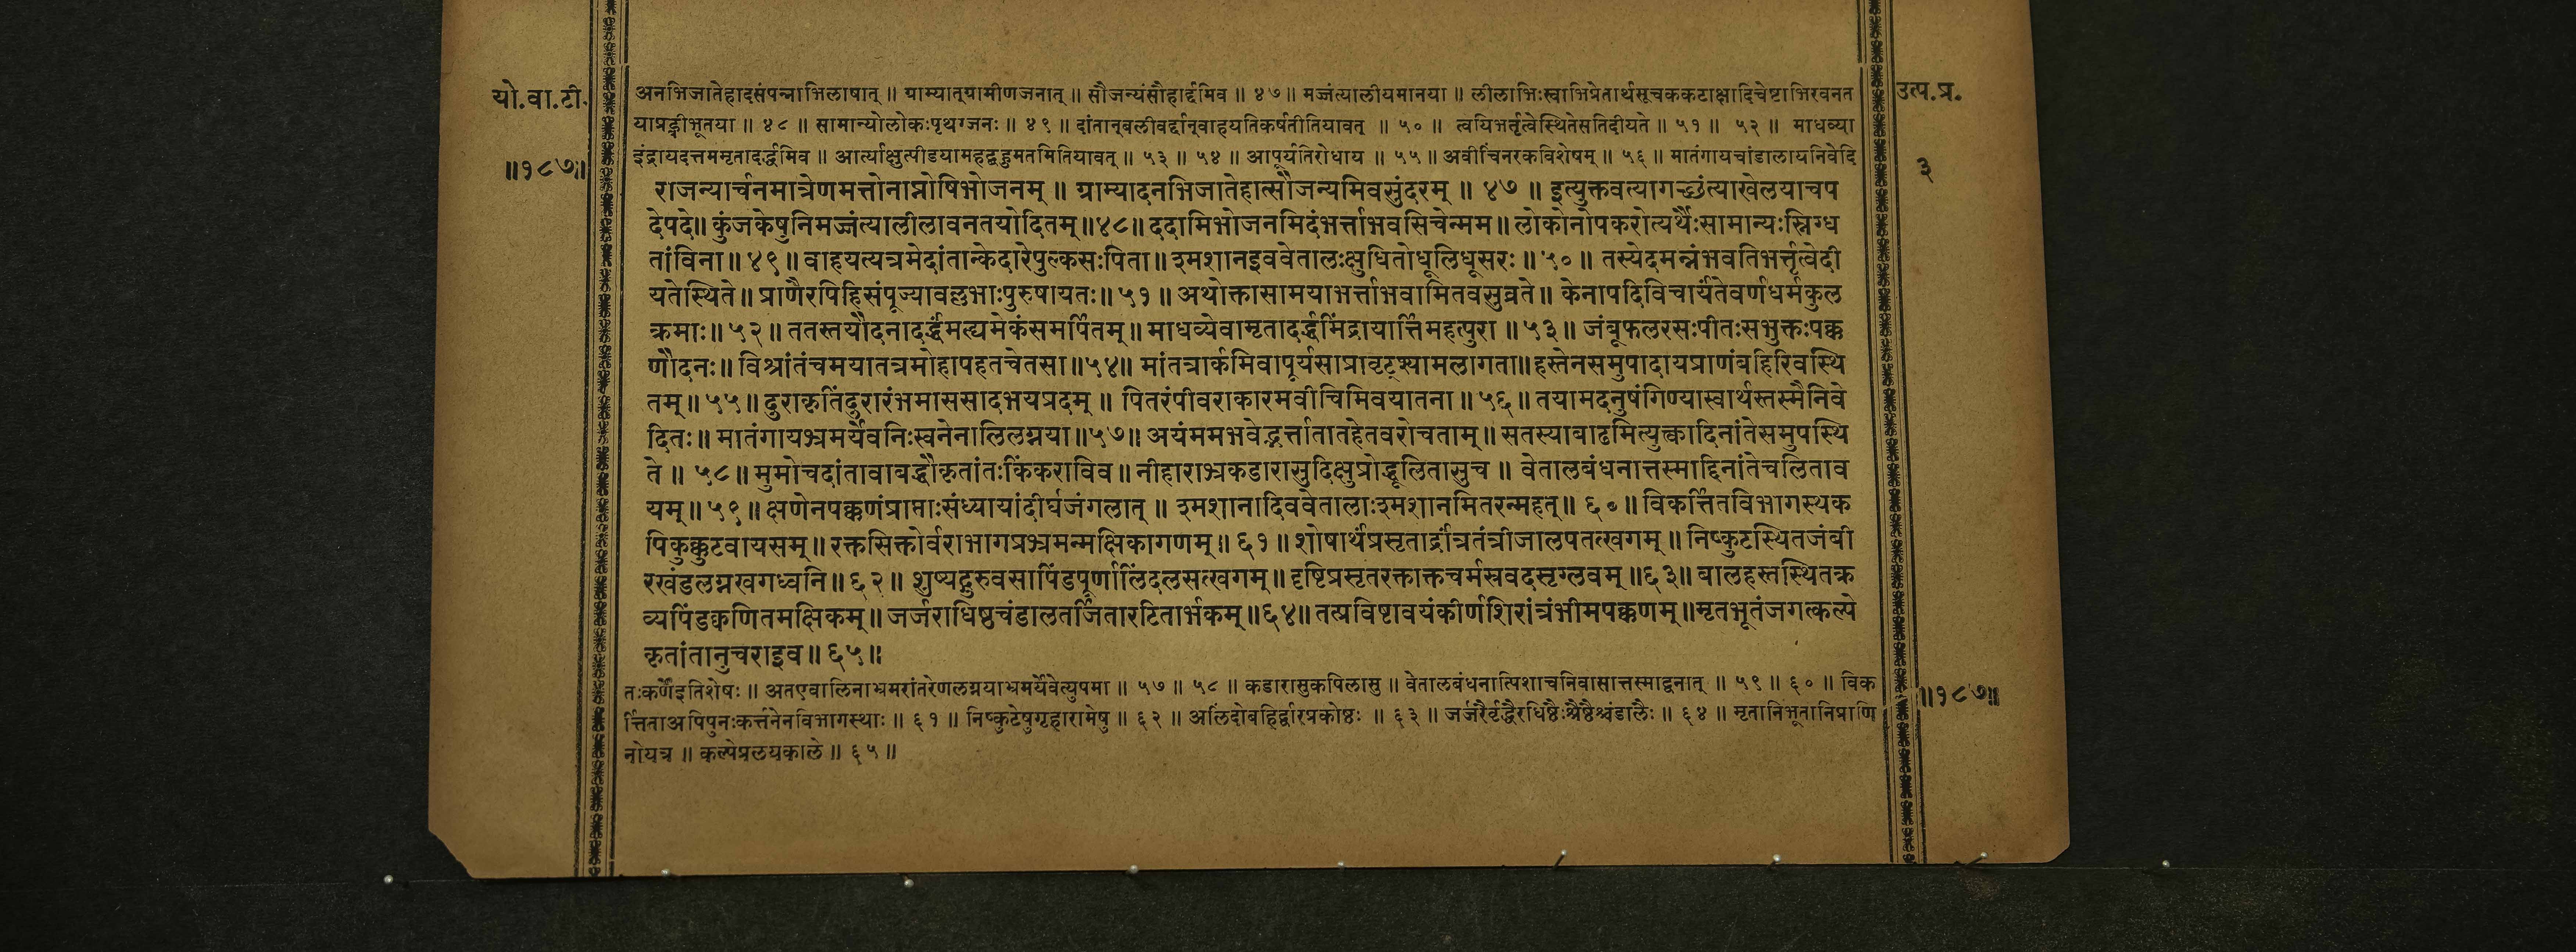 यो.वा.टी.
॥१८७॥
उत्प.प्र.
३
अनभिजातेहादसंपन्नाभिलाषात् ॥ ग्राम्यात्ग्रामीणजनात् ॥ सौजन्यंसौहार्द्दमिव ॥ ४७ ॥ मज्जंत्यालीयमानया ॥ लीलाभिःस्वाभिप्रेतार्थसूचककटाक्षादिचेष्टाभिरवनत
याप्रह्वीभूतया ॥ ४८ ॥ सामान्योलोकःपृथग्जनः ॥ ४९ ॥ दांतान्बलीवर्द्दान्वाहयतिकर्षतीतियावत् ॥ ५० ॥ त्वयिभर्तृत्वेस्थितेसतिदीयते ॥ ५१ ॥ ५२ ॥ माधव्या
इंद्रायदत्तममृतादर्द्धमिव ॥ आर्त्याक्षुत्पीडयामहद्बहुमतमितियावत् ॥ ५३ ॥ ५४ ॥ आपूर्यतिरोधाय ॥ ५५ ॥ अवीचिंनरकविशेषम् ॥ ५६ ॥ मातंगायचांडालायनिवेदि
राजन्यार्चनमात्रेणमत्तोनाप्नोषिभोजनम् ॥ ग्राम्यादनभिजातेहात्सौजन्यमिवसुंदरम् ॥ ४७ ॥ इत्युक्तवत्यागच्छंत्याखेलयाचप
देपदे॥ कुंजकेषुनिमज्जंत्यालीलावनतयोदितम्॥४८॥ ददामिभोजनमिदंभर्त्ताभवसिचेन्मम॥ लोकोनोपकरोत्यर्थैःसामान्यःस्निग्ध
तांविना॥ ४९॥ वाहयत्यत्रमेदांतान्केदारेपुल्कसःपिता॥ श्मशानइववेतालःक्षुधितोधूलिधूसरः ॥ ५० ॥ तस्येदमन्नंभवतिभर्त्तृत्वेदी
यतेस्थिते॥ प्राणैरपिहिसंपूज्यावल्लभाःपुरुषायतः॥ ५१ ॥ अथोक्तासामयाभर्त्ताभवामितवसुव्रते॥ केनापदिविचार्यंतेवर्णधर्मकुल
क्रमाः॥ ५२॥ ततस्तयौदनादर्द्धंमत्द्यमेकंसमर्पितम्॥ माधव्येवामृतादर्द्धमिंद्रायार्त्तिमहत्पुरा ॥ ५३॥ जंबूफलरसःपीतःसभुक्तःपक्क
णौदनः॥ विश्रांतंचमयातत्रमोहापहृतचेतसा॥५४॥ मांतत्रार्कमिवापूर्यसाप्रावृट्श्यामलागता॥हस्तेनसमुपादायप्राणंबहिरिवस्थि
तम्॥ ५५॥ दुराकृतिंदुरारंभमाससादभयप्रदम् ॥ पितरंपीवराकारमवीचिमिवयातना॥ ५६॥ तयामदनुषंगिण्यास्वार्थस्तस्मैनिवे
दितः॥ मातंगायभ्रमर्येवनिःस्वनेनालिलग्नया॥५७॥ अयंममभवेद्भर्त्तातातहेतवरोचताम्॥ सतस्याबाढमित्युक्त्वादिनांतेसमुपस्थि
ते ॥ ५८॥ मुमोचदांतावाबद्धौकृतांतःकिंकराविव॥ नीहाराभ्रकडारासुदिक्षुप्रोद्धूलितासुच ॥ वेतालबंधनात्तस्माद्दिनांतेचलिताव
यम्॥ ५९॥ क्षणेनपक्कणंप्राप्ताःसंध्यायांदीर्घजंगलात् ॥ श्मशानादिववेतालाःश्मशानमितरन्महत्॥ ६०॥ विकर्त्तितविभागस्थक
पिकुक्कुटवायसम्॥ रक्तसिक्तोर्वराभागप्रभ्रमन्मक्षिकागणम्॥ ६१ ॥ शोषार्थंप्रसृतार्द्रांत्रतंत्रीजालपतत्खगम्॥ निष्कुटस्थितजंबी
रखंडलग्नखगध्वनि॥ ६२॥ शुष्यद्गुरुवसापिंडपूर्णालिंदलसत्खगम्॥ दृष्टिप्रसृतरक्ताक्तचर्मस्रवदसृग्लवम् ॥६३॥ बालहस्तस्थितक्र
व्यपिंडक्वणितमक्षिकम्॥ जर्जराधिष्ठचंडालतर्जितारटितार्भकम्॥६४॥ तत्प्रविष्टावयंकीर्णशिरांत्रंभीमपक्कणम्॥मृतभूतंजगत्कल्पे
कृतांतानुचराइव॥ ६५॥
तःकर्णेइतिशेषः ॥ अतएवालिनाभ्रमरांतरेणलग्नयाभ्रमर्येवेत्युपमा ॥ ५७ ॥ ५८ ॥ कडारासुकपिलासु ॥ वेतालबंधनात्पिशाचनिवासात्तस्माद्वनात् ॥ ५९ ॥ ६० ॥ विक
र्त्तिताअपिपुनःकर्त्तनेनविभागस्थाः ॥ ६१ ॥ निष्कुटेषुगृहारामेषु ॥ ६२ ॥ अलिंदोबहिर्द्वारप्रकोष्ठः ॥ ६३ ॥ जर्जरैर्वृद्धैरधिष्ठैःश्रेष्ठैश्चंडालैः ॥ ६४ ॥ मृतानिभूतानिप्राणि
नोयत्र ॥ कल्पेप्रलयकाले ॥ ६५ ॥
॥१८७॥